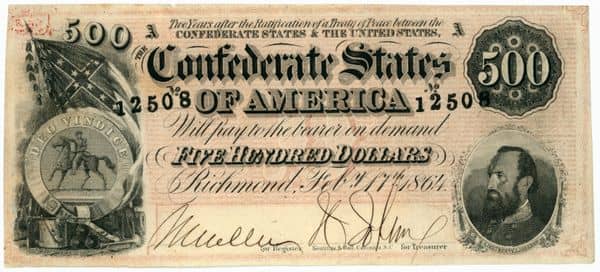 Two Years after the Ratification of a Treaty of Peace between the
CONFEDERATE STATES & THE UNITED STATES,
A A
500
THE Confederate States
500
No 12508 No 12508
OF AMERICA
Will pay to the bearer on demand
FIVE HUNDRED DOLLARS
Richmond, Feby. 17th 1864
DEO VINDICE
for Register
Keatinge & Ball, Columbia, S.C.
for Treasurer